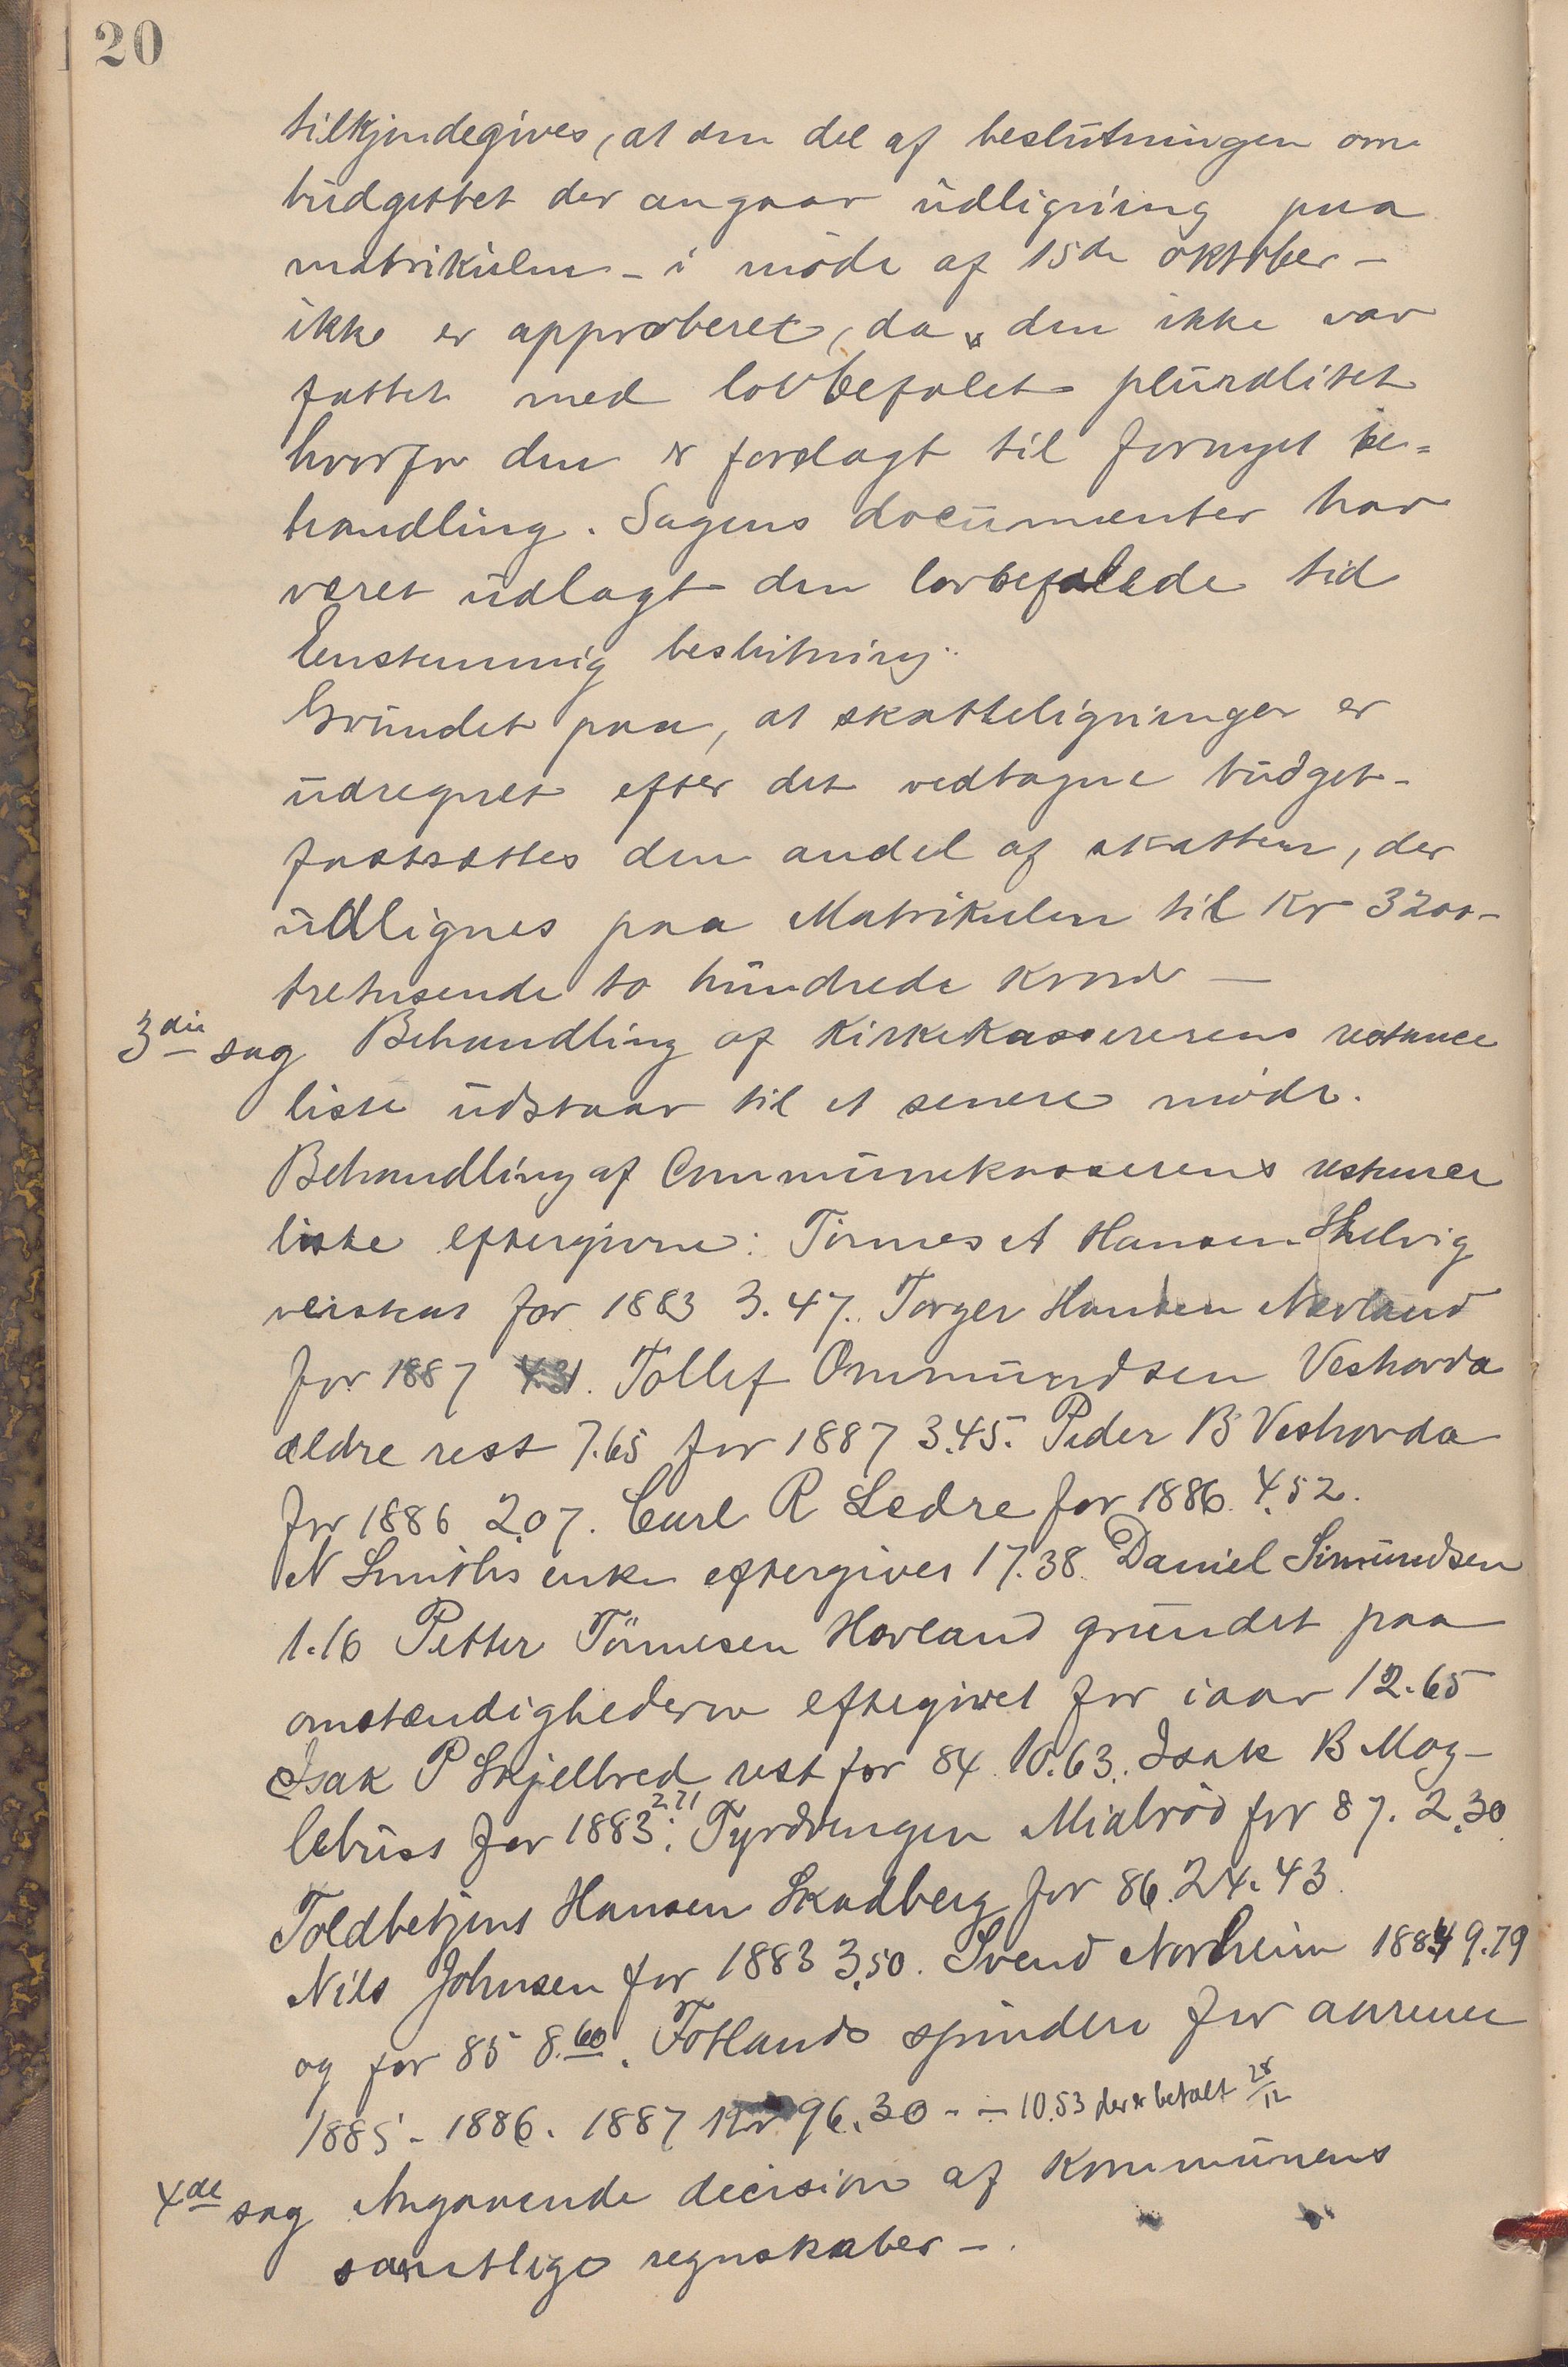 20
tilkjendegives, at den del af beslutningen om
budgettet der angaar udligning paa
matrikulen - i møde af 15de oktober -
ikke er approberet, da den ikke var
fattet med lovbefalet pluralitet
hvorfor den er forelagt til fornyet be=
handling. Sagens documenter har
været udlagt den lovbefalede tid
Enstemmig beslutning:
Grundet paa, at skatteligninger er
udregnet efter det vedtagne budget-
fastsættes den andel af skatten, der
udlignes paa Matrikulen til Kr 3200-
tretusende to hundrede kroner -
3die sag Behandling af Kirkekassererens restance
liste udstaar til et senere møde.
Behandling af Communekasserens restance
liste eftergivne: Tønnes A Hansen Helvig
veiskat for 1883 3.47. Torger Hansen Nevland
for 1887 4.31. Tollef Ommundsen Veshovda
ældre rest 7.65 for 1887 3.45. Peder B Veshovda
for 1886 2.07. Carl R Ledre for 1886. 4.52.
N Smiths enke eftergives 17.38. Daniel Simundsen
1.16 Petter Tönnesen Hovland grundet paa
omstændighederne eftergivet for iaar 12.65
Isak P Skjelbred rest for 84. 10.63. Isak B Mog-
lebust for 1883. 2.71 Fyrdvengen Midbrød for 87. 2.30
Toldbetjent Hansen Skadberg for 86. 24.43.
Nils Johnsen for 1883 3.50. Svend Norheim 1884 9.79
og for 85 8.60. Fotlands spinderi for aarene
1885 - 1886. 1887 Kr 96.30 - - 10.53 der er betalt 28/12
4de sag Angaaende decision af kommunens
samtlige regnskaber - .